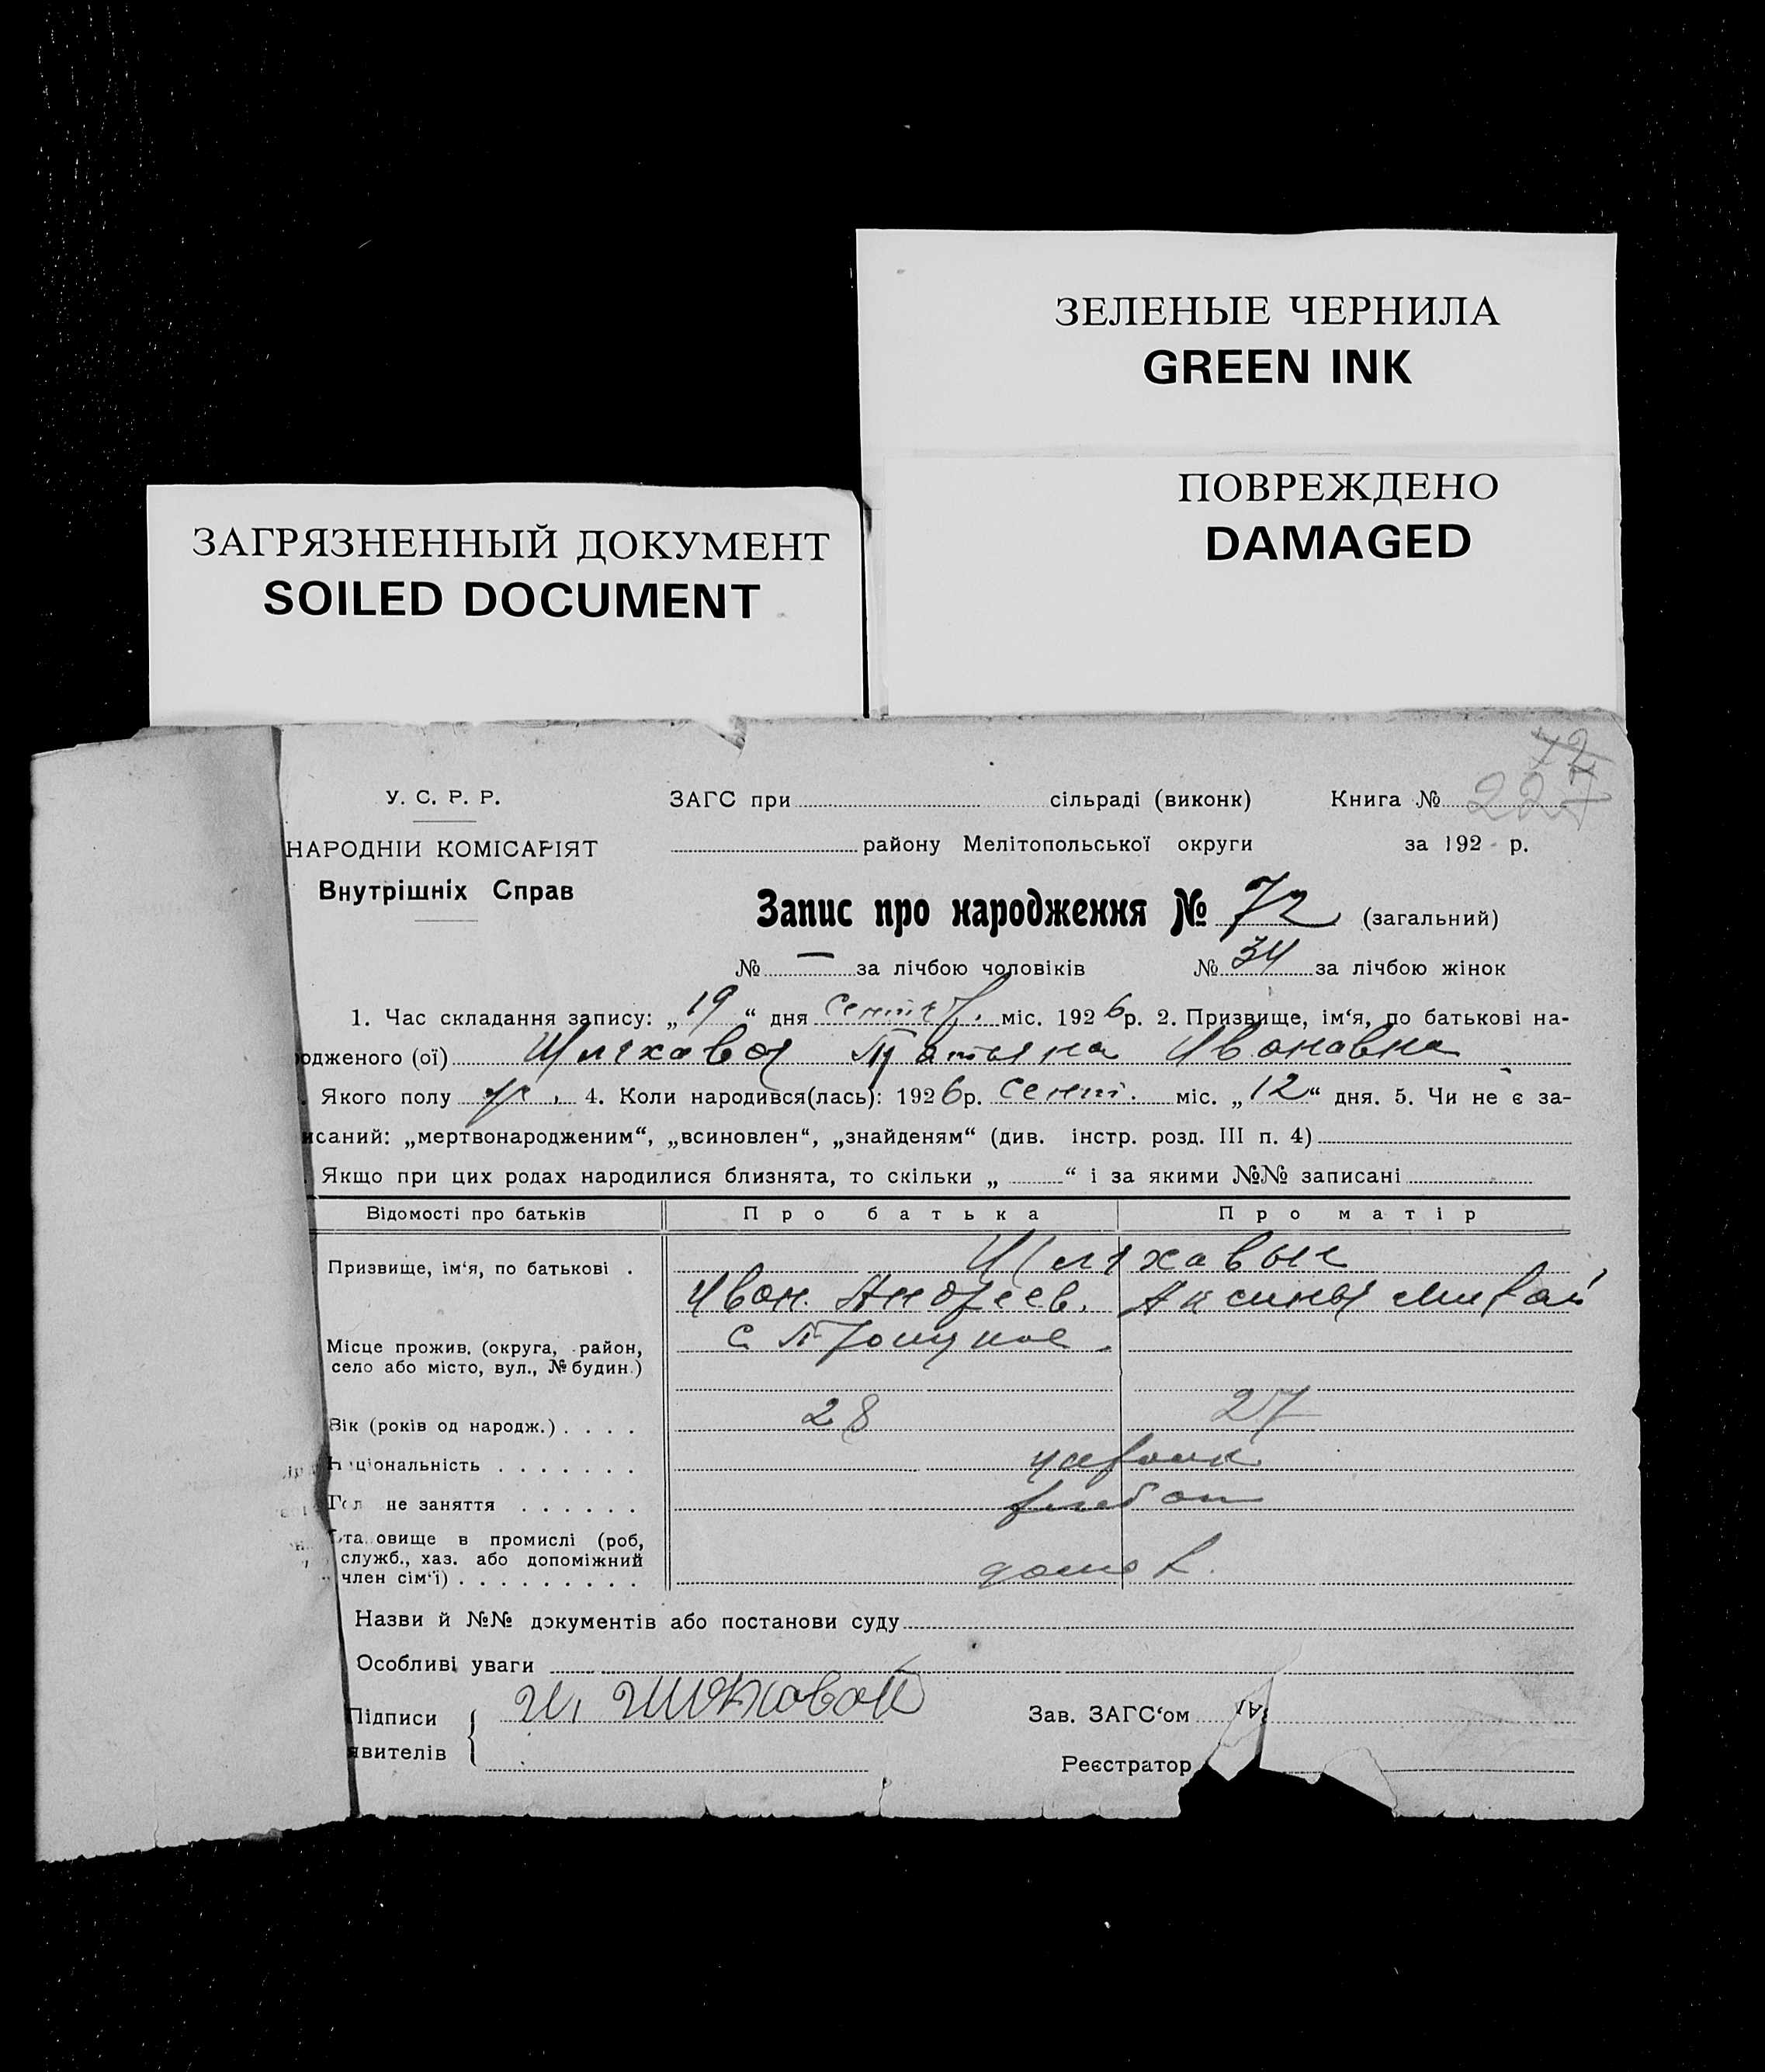 ЗЕЛЕНЫЕ ЧЕРНИЛА
GREEN INK
ПОВРЕЖДЕНО
DAMAGED
ЗАГРЯЗНЕННЫЙ ДОКУМЕНТ
SOILED DOCUMENT
72
227
У. С. Р. Р.
НАРОДНІЙ КОМІСАРІЯТ
Внутрішніх Справ
ЗАГС при сільраді (виконк) Книга №
району Мелітопольської округи за 192 р.
Запис про народження № 72 (загальний)
№ — за лічбою чоловіків № 34 за лічбою жінок
1. Час складання запису: „19“ дня сентяб. міс. 1926р. 2. Призвище, ім‘я, по батькові на-
одженого (ої) Шляховая Татьяна Ивановна
Якого полу 4. Коли народився(лась): 1926р. сент. міс. „12“ дня. 5. Чи не є за-
исаний: „мертвонародженим“, „всиновлен“, „знайденям“ (див. інстр. розд. III п. 4)
Якщо при цих родах народилися близнята, то скільки „ “ і за якими №№ записані
Відомості про батьків Про батька Про матір
Призвище, ім‘я, по батькові . Шляховые
Иван. Андреев. Аксинья
Місце прожив. (округа, район, с.
село або місто, вул., № будин.)
Вік (років од народж.) . . . . 28 27
Національність . . . . . . .
Гол не заняття . . . . . .
Становище в промислі (роб,
служб., хаз. або допоміжний
член сім‘ї) . . . . . . . . .
Назви й №№ документів або постанови суду
Особливі уваги
Підписи
явителів
Зав. ЗАГС‘ом
Реєстратор